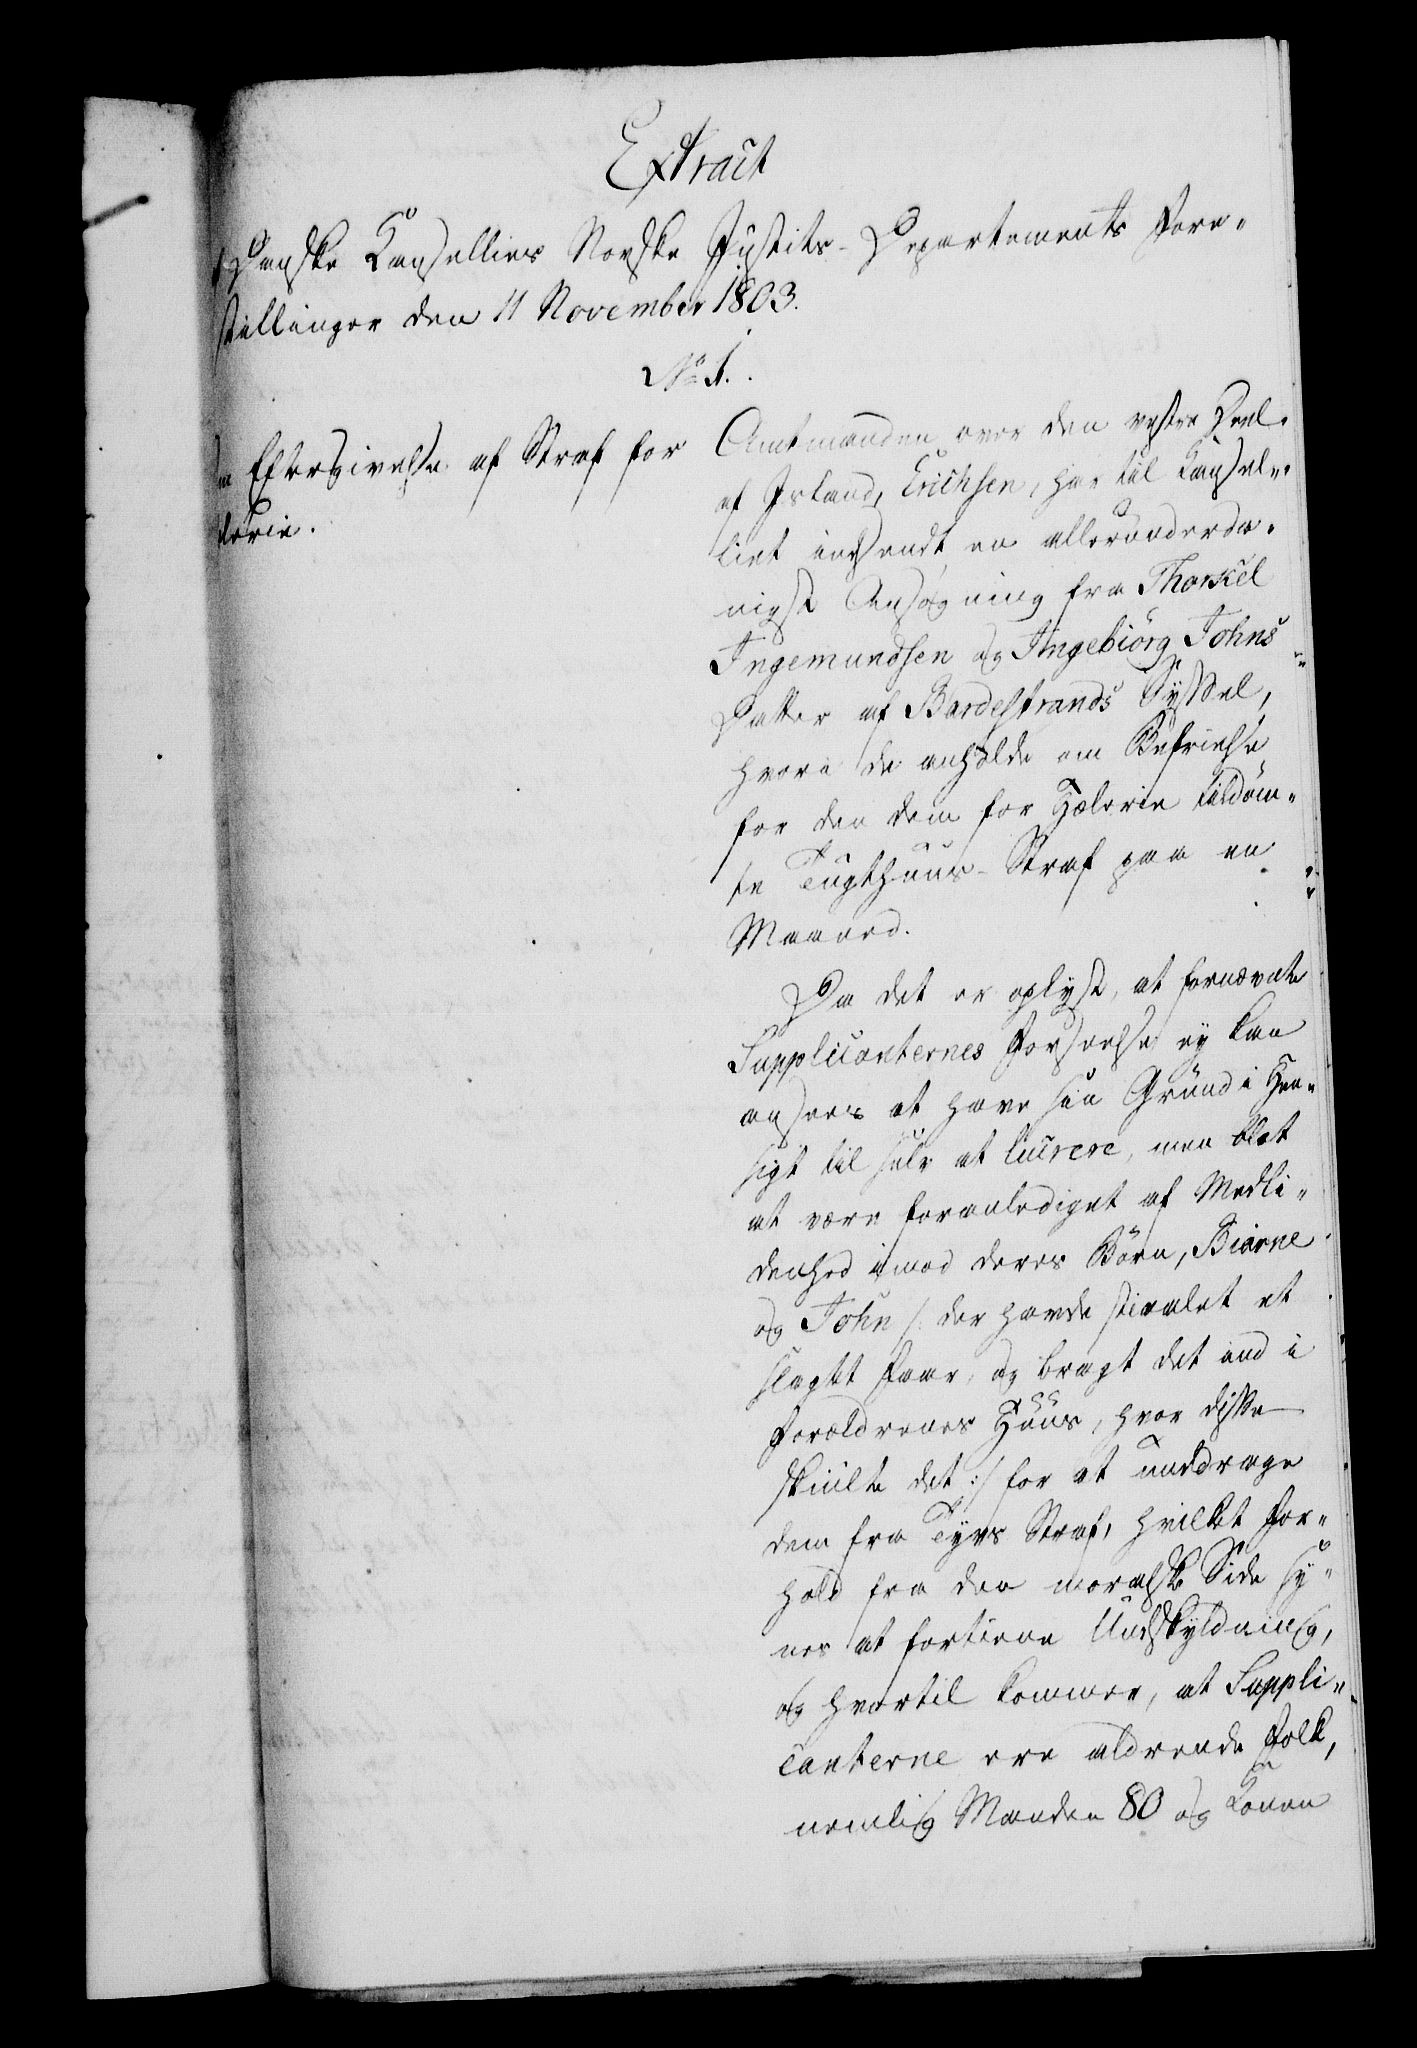 Extract
Danske Cancellies Norske Justits-Departements Fore-
stillinger den 11 November 1803.
No 1.
Eftergivelse af Straf for
lerie.
Amtmanden over den vestre Deel
af Island, Erichsen, har til Cancel-
liet indsendt en allerunderda-
nigst Ansøgning fra Thorkel
Ingemundsen og Ingebiörg Johns
Datter af Bardestrands Syssel,
hvori de anholde om Befrielse
for den dem for Hælerie tildöm-
te Tugthuus-Straf paa en
Maaned.
Da det er oplyst, at fornævnte
Supplicanternes Forseelse ey kan
ansees at have sin Grund i Hen-
sigt til selv at lucrere, men blot
at være foranlediget af Medli-
denhed imod deres Börn, Biarne
og John /: der havde stiaalet et
slagtet Faar, og bragt det ind i
Forældrenes Huus, hvor disse
skiulte det :/ for at unddrage
dem fra Tyvs Straf, hvilket For-
hold fra den moralske Side sy-
nes at fortiene Undskyldning,
og hvortil kommer, at Suppli-
canterne ere aldrende Folk,
nemlig Manden 80 og Konen